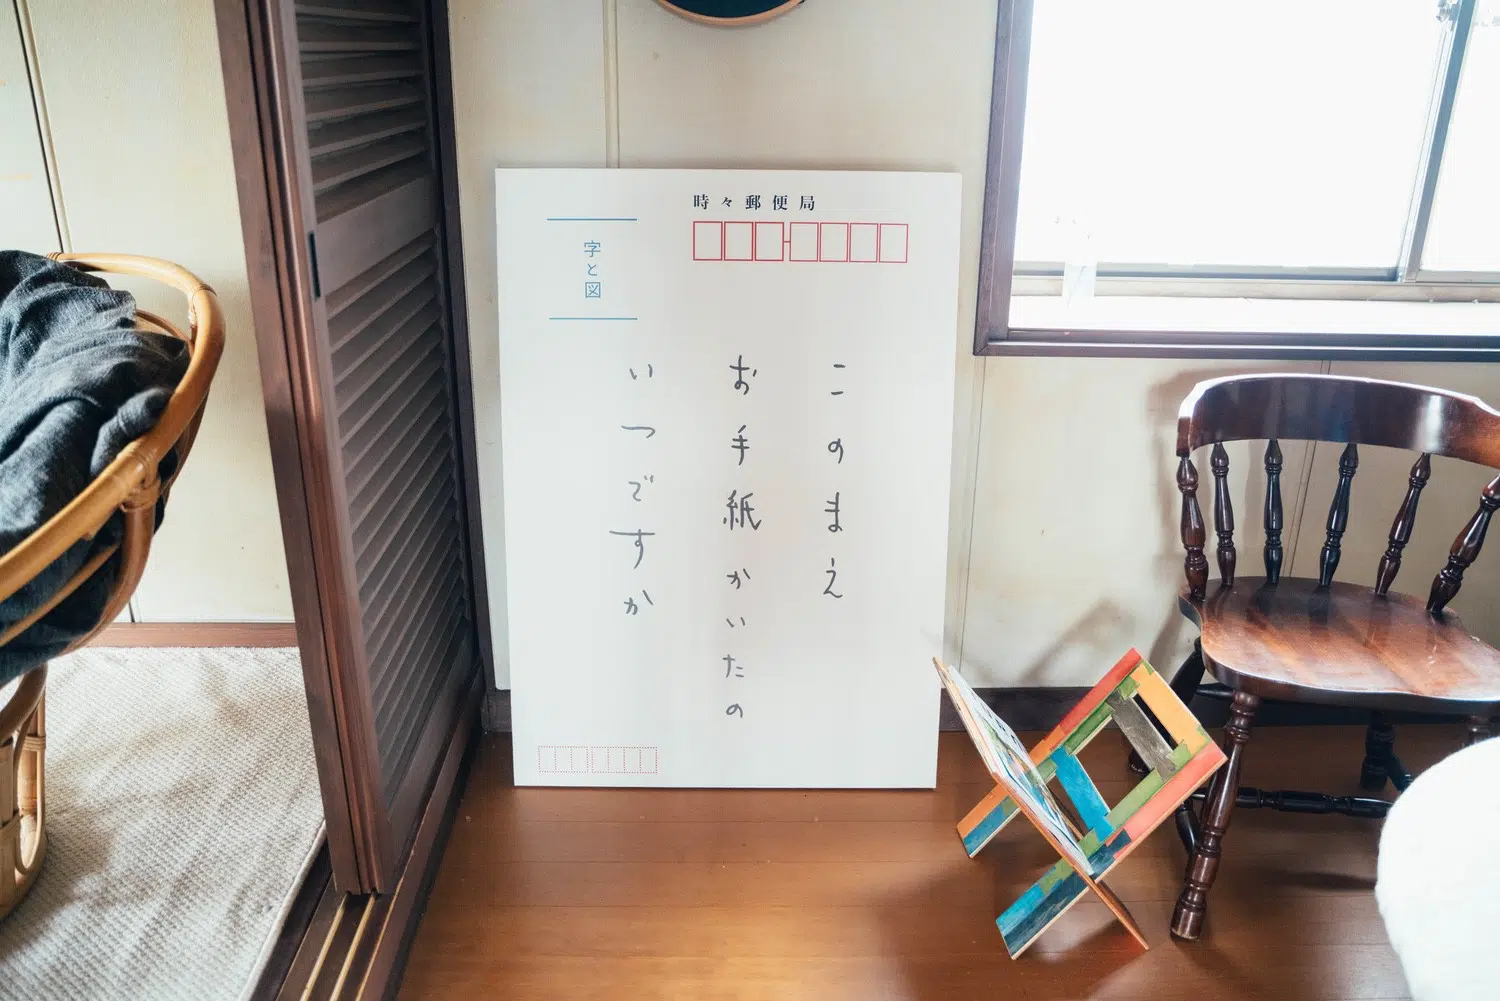 時々郵便局
字と図
このまえ
お手紙かいたの
いつですか